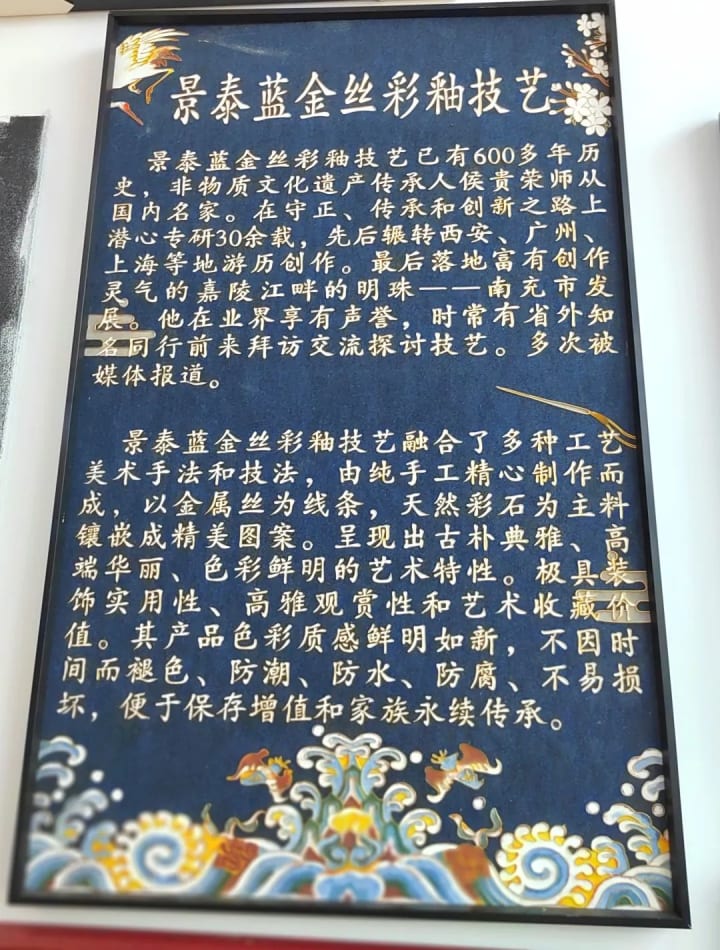 景泰蓝金丝彩釉技艺
景泰蓝金丝彩釉技艺已有600多年历
史，非物质文化遗产传承人侯贵荣师从
国内名家。在守正、传承和创新之路上
潜心专研30余载，先后辗转西安、广州、
上海等地游历创作。最后落地富有创作
灵气的嘉陵江畔的明珠——南充市发
展。他在业界享有声誉，时常有省外知
名同行前来拜访交流探讨技艺。多次被
媒体报道。
景泰蓝金丝彩釉技艺融合了多种工艺
美术手法和技法，由纯手工精心制作而
成，以金属丝为线条，天然彩石为主料
镶嵌成精美图案。呈现出古朴典雅、高
端华丽、色彩鲜明的艺术特性。极具装
饰实用性、高雅观赏性和艺术收藏价
值。其产品色彩质感鲜明如新，不因时
间而褪色、防潮、防水、防腐、不易损
坏，便于保存增值和家族永续传承。